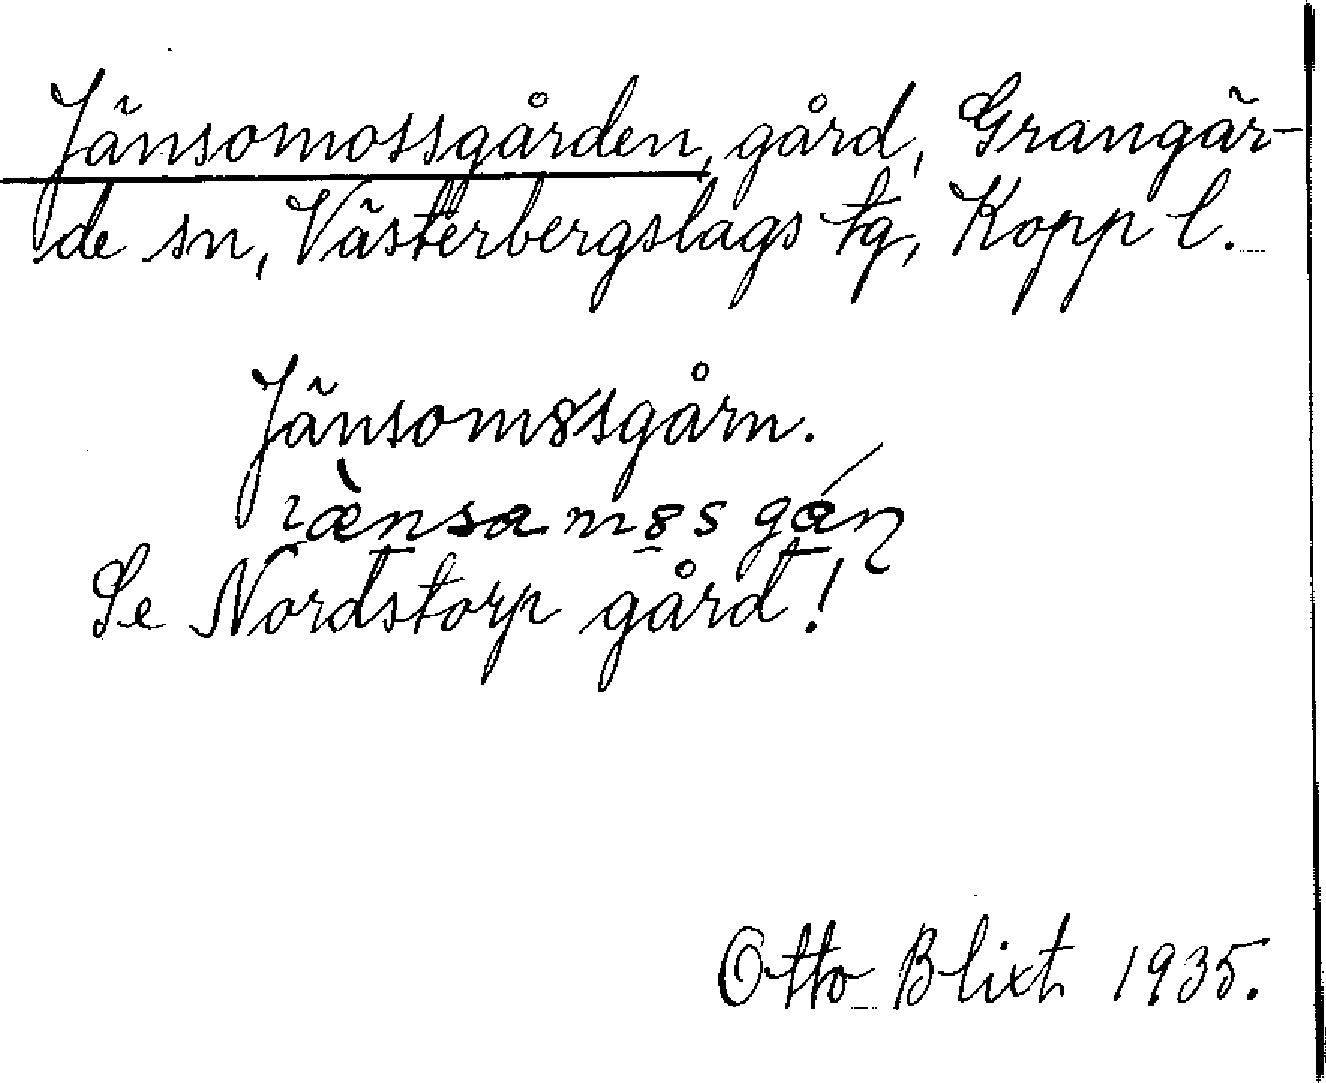 Jänsomossgården, gård, Grangär-
de sn, Västerbergslags tg, Kopp l.
Jänsom8ssgårn.
Se Nordstorp gård!
Otto Blixt 1935.